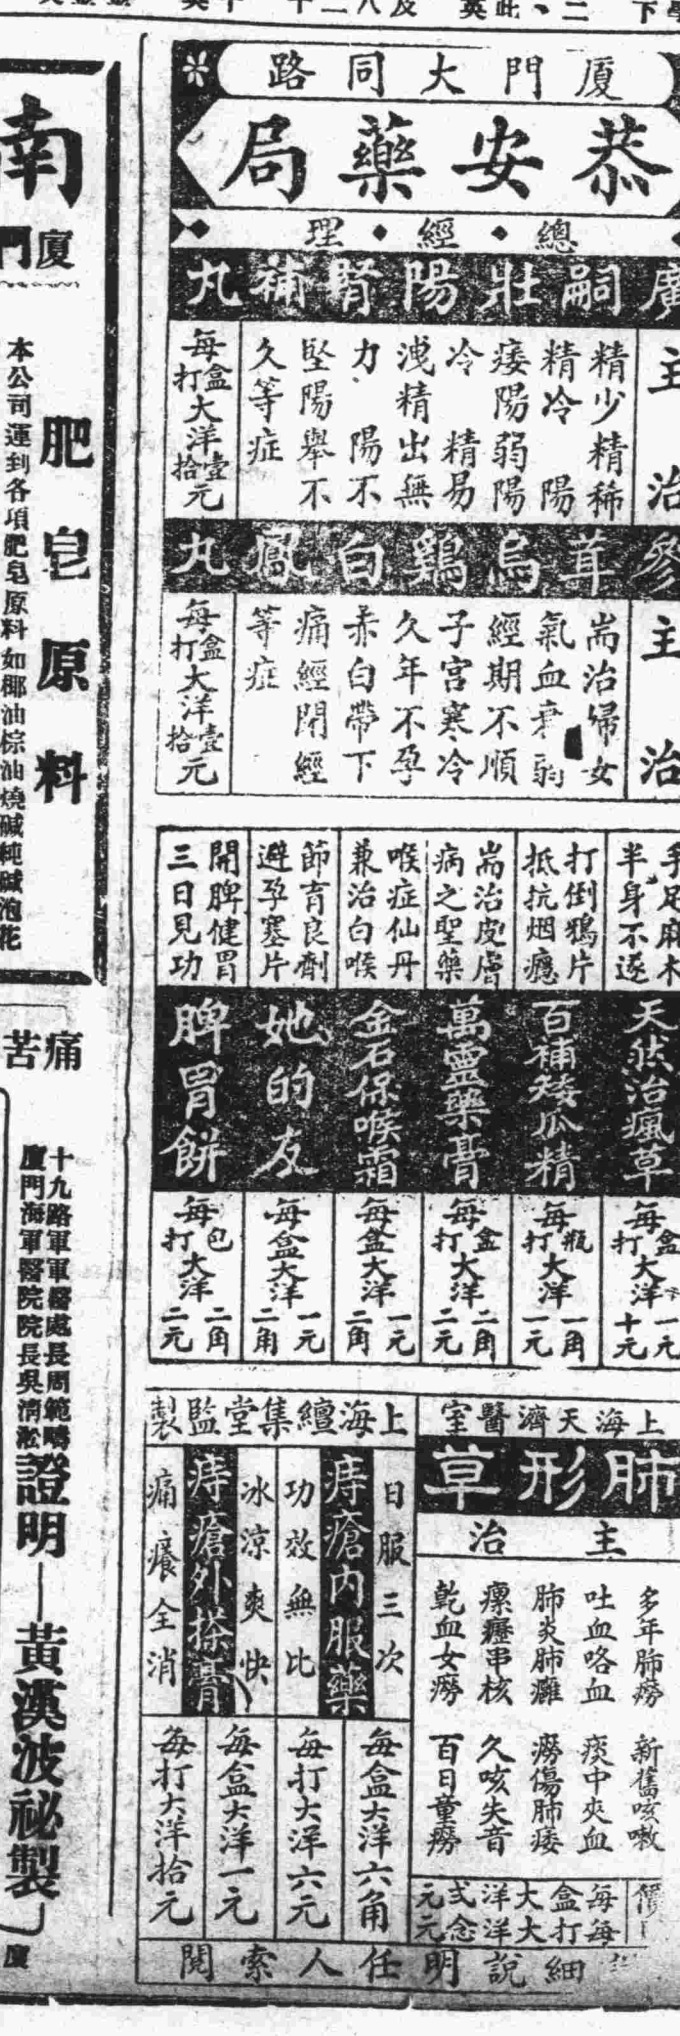 廈門大同路
恭安藥局
總·經·理
廣嗣壯陽腎補丸
主治
精少精稀
精冷陽
痿陽弱陽
冷精易
洩精出無
力陽不
堅陽舉不
久等症
每盒大洋壹元
每打大洋拾元
參茸烏鷄白鳳丸
主治
耑治婦女
氣血衰弱
經期不順
子宮寒冷
久年不孕
赤白帶下
痛經閉經
等症
每盒大洋壹元
每打大洋拾元
手足麻木
半身不遂
天然治瘋草
每盒大洋一元
每打大洋十元
打倒鴉片
抵抗烟癮
百補矮瓜精
每瓶大洋一角
每打大洋一元
耑治皮膚
病之聖藥
萬靈藥膏
每盒大洋二角
每打大洋二元
喉症仙丹
兼治白喉
金石保喉霜
每盒大洋一元二角
節育良劑
避孕塞片
她的友
每盒大洋一元二角
開脾健胃
三日見功
脾胃餅
每包大洋二角
每打大洋二元
上海天濟醫室
肺形草
主治
多年肺癆 新舊咳嗽
吐血咯血 痰中夾血
肺炎肺癰 癆傷肺痿
瘰癧串核 久咳失音
乾血女癆 百日童癆
每盒大洋弍元
每打大洋念元
上海繵集堂監製
日服三次
痔瘡內服藥
功效無比
每盒大洋六角
每打大洋六元
冰涼爽快
痔瘡外搽膏
痛癢全消
每盒大洋一元
每打大洋拾元
細說明任人索閱
南
廈門
肥皂原料
本公司運到各項肥皂原料如椰油棕油燒碱純碱泡花
痛苦
十九路軍軍醫處長周範疇
廈門海軍醫院院長吳清淞
證明—黃漢波祕製
廈